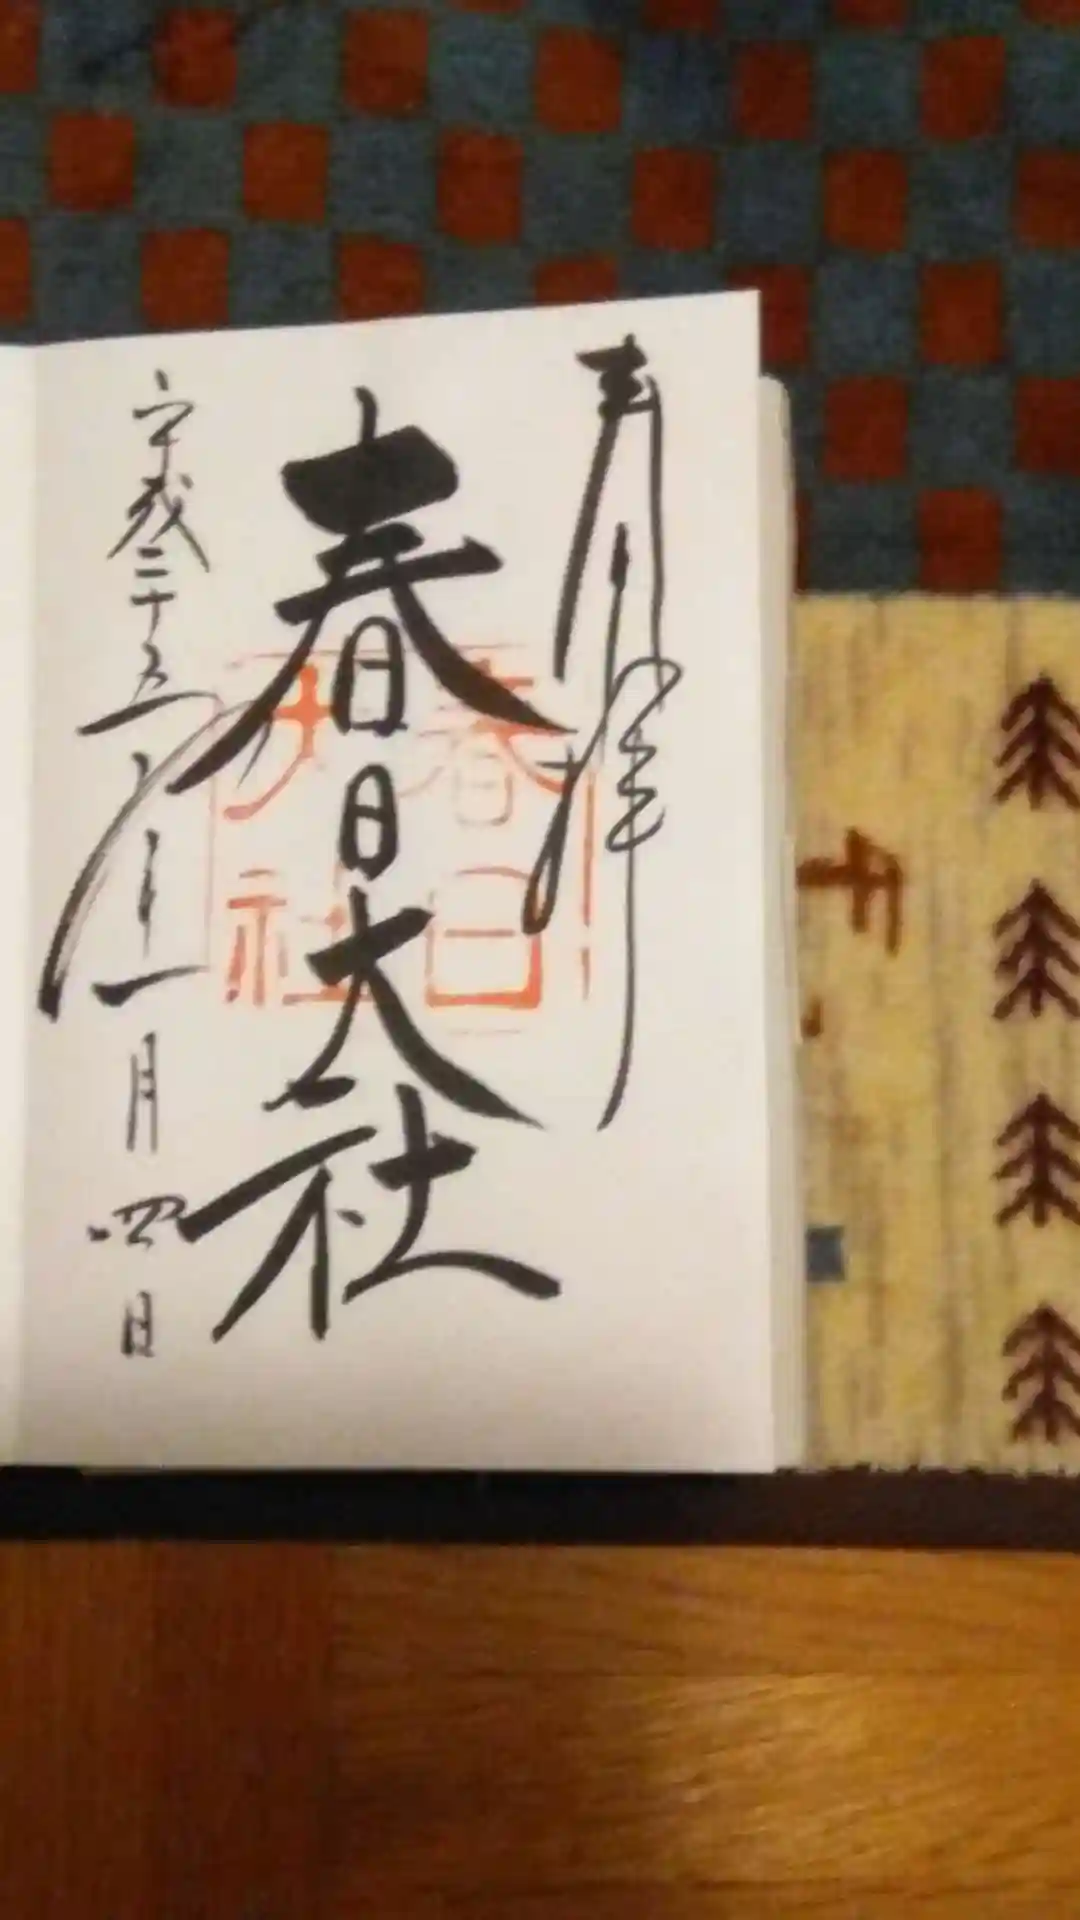 奉拝
春日大社
春日
大社
平成二十五年十一月四日